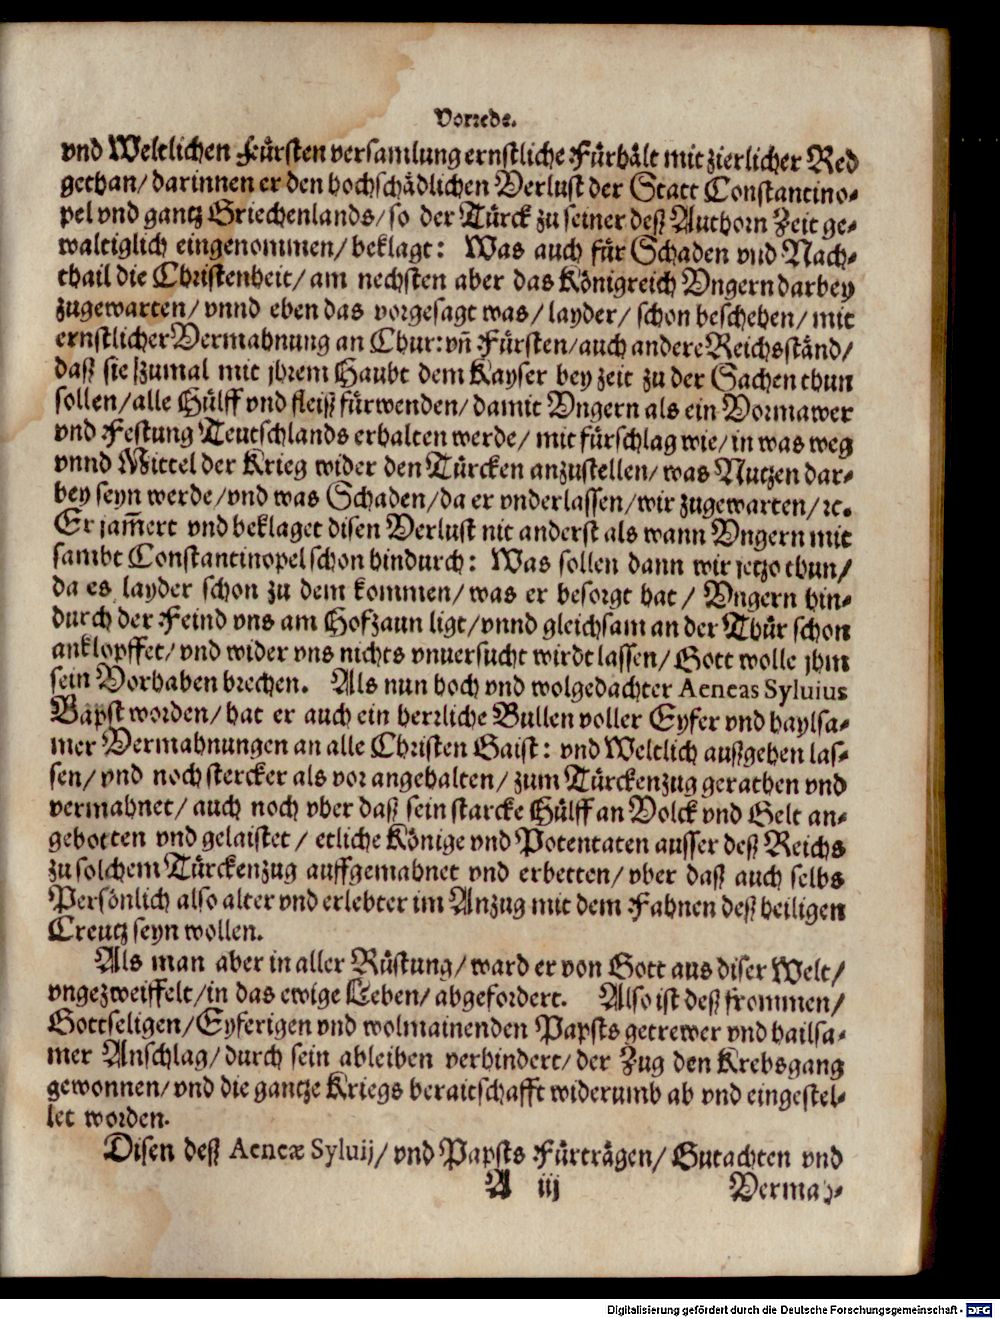 Vorrede.
vnd Weltlichen Fürsten versamlung ernstliche Fürhält mit zierlicher Red
gethan/ darinnen er den hochschädlichen Verlust der Statt Constantino-
pel vnd gantz Griechenlands/ so der Türck zu seiner deß Authorn Zeit ge-
waltiglich eingenommen/ beklagt: Was auch für Schaden vnd Nach-
thail die Christenheit/ am nechsten aber das Königreich Vngern darbey
zugewarten/ vnnd eben das vorgesagt was/ layder/ schon beschehen/ mit
ernstlicher Vermahnung an Chur: vñ Fürsten/ auch andere Reichsständ/
daß sie zumal mit jhrem Haubt dem Kayser bey zeit zu der Sachen thun
sollen/ alle Hülff vnd fleiß fürwenden/ damit Vngern als ein Vormawer
vnd Festung Teutschlands erhalten werde/ mit fürschlag wie/ in was weg
vnnd Mittel der Krieg wider den Türcken anzustellen/ was Nutzen dar-
bey seyn werde/ vnd was Schaden/ da er vnderlassen/ wir zugewarten/ ꝛc.
Er jam̃ert vnd beklaget disen Verlust nit anderst als wann Vngern mit
sambt Constantinopel schon hindurch: Was sollen dann wir jetzo thun/
da es layder schon zu dem kommen/ was er besorgt hat/ Vngern hin-
durch der Feind vns am Hofzaun ligt/ vnnd gleichsam an der Thür schon
anklopffet/ vnd wider vns nichts vnuersucht wirdt lassen/ Gott wolle jhm
sein Vorhaben brechen. Als nun hoch vnd wolgedachter Aeneas Syluius
Bapst worden/ hat er auch ein herrliche Bullen voller Eyfer vnd haylsa-
mer Vermahnungen an alle Christen Gaist: vnd Weltlich außgehen las-
sen/ vnd noch stercker als vor angehalten/ zum Türckenzug gerathen vnd
vermahnet/ auch noch vber daß sein starcke Hülff an Volck vnd Gelt an-
gebotten vnd gelaistet/ etliche Könige vnd Potentaten ausser deß Reichs
zu solchem Türckenzug auffgemahnet vnd erbetten/ vber daß auch selbs
Persönlich also alter vnd erlebter im Anzug mit dem Fahnen deß heiligen
Creutz seyn wollen.
Als man aber in aller Rüstung/ ward er von Gott aus diser Welt/
vngezweiffelt/ in das ewige Leben/ abgefordert. Also ist deß frommen/
Gottseligen/ Eyferigen vnd wolmainenden Papsts getrewer vnd hailsa-
mer Anschlag/ durch sein ableiben verhindert/ der Zug den Krebsgang
gewonnen/ vnd die gantze Kriegs beraitschafft widerumb ab vnd eingestel-
let worden.
Disen deß Aeneæ Syluij/ vnd Papsts Fürträgen/ Gutachten vnd
A iij Vermah-
Digitalisierung gefördert durch die Deutsche Forschungsgemeinschaft - DFG